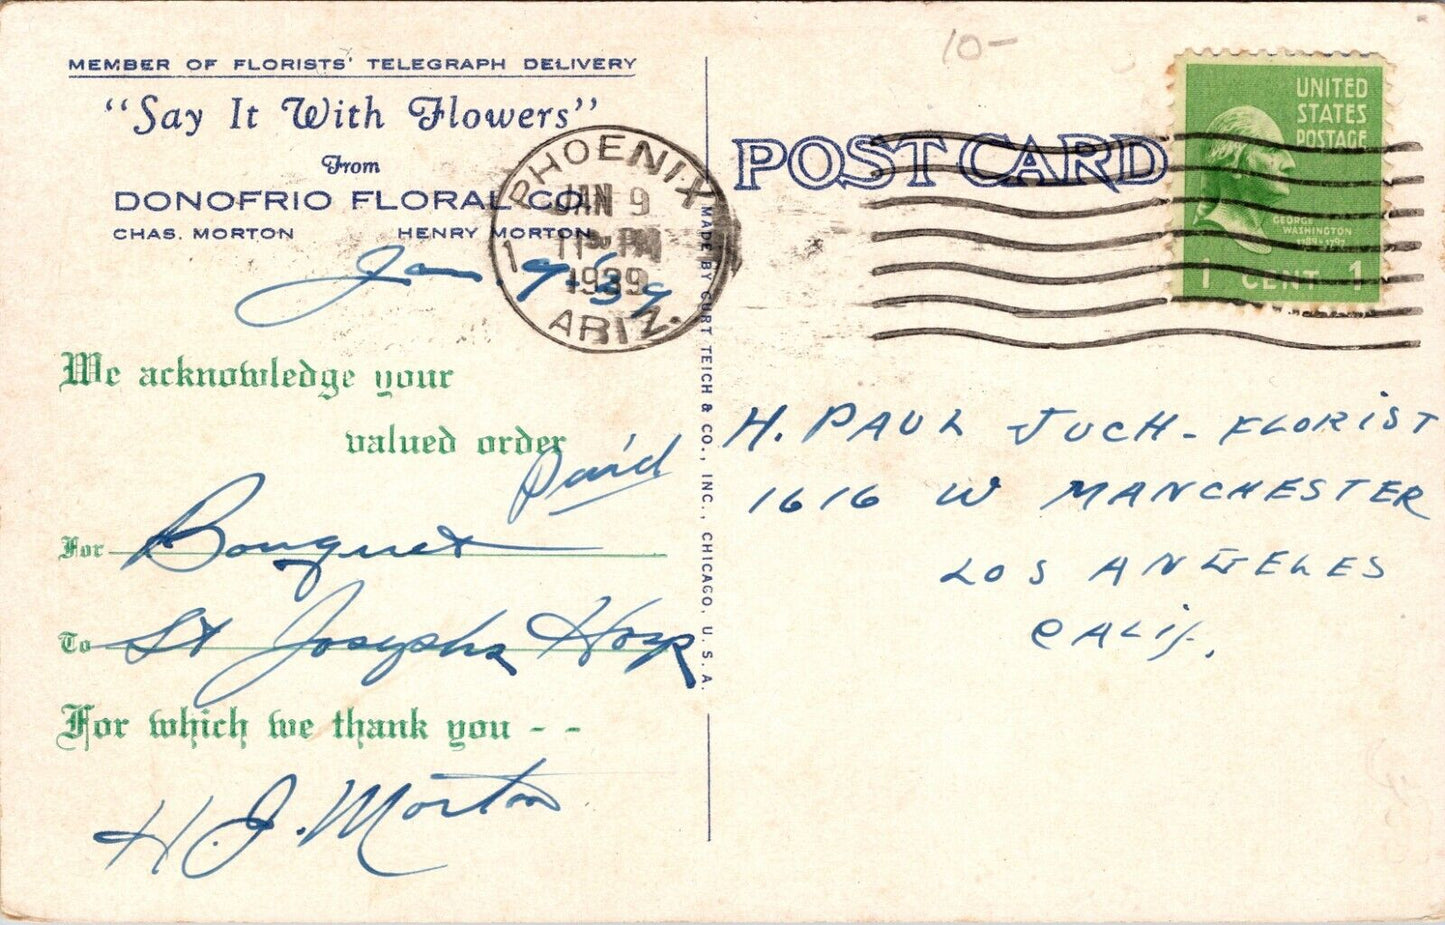 10-
MEMBER OF FLORISTS' TELEGRAPH DELIVERY
"Say It With Flowers"
From
DONOFRIO FLORAL CO.
CHAS. MORTON HENRY MORTON
Jan. 9-'39
We acknowledge your
valued order
Paid
For Bouquet
To St Josephs Hosp
For which we thank you - -
H. J. Morton
PHOENIX
1
JAN 9
11 30 PM
1939
ARIZ.
MADE BY CURT TEICH & CO., INC., CHICAGO, U. S. A.
POST CARD
UNITED
STATES
POSTAGE
GEORGE
WASHINGTON
1789-1797
1 CENT 1
H. PAUL JUCH - FLORIST
1616 W MANCHESTER
LOS ANGELES
CALIF.